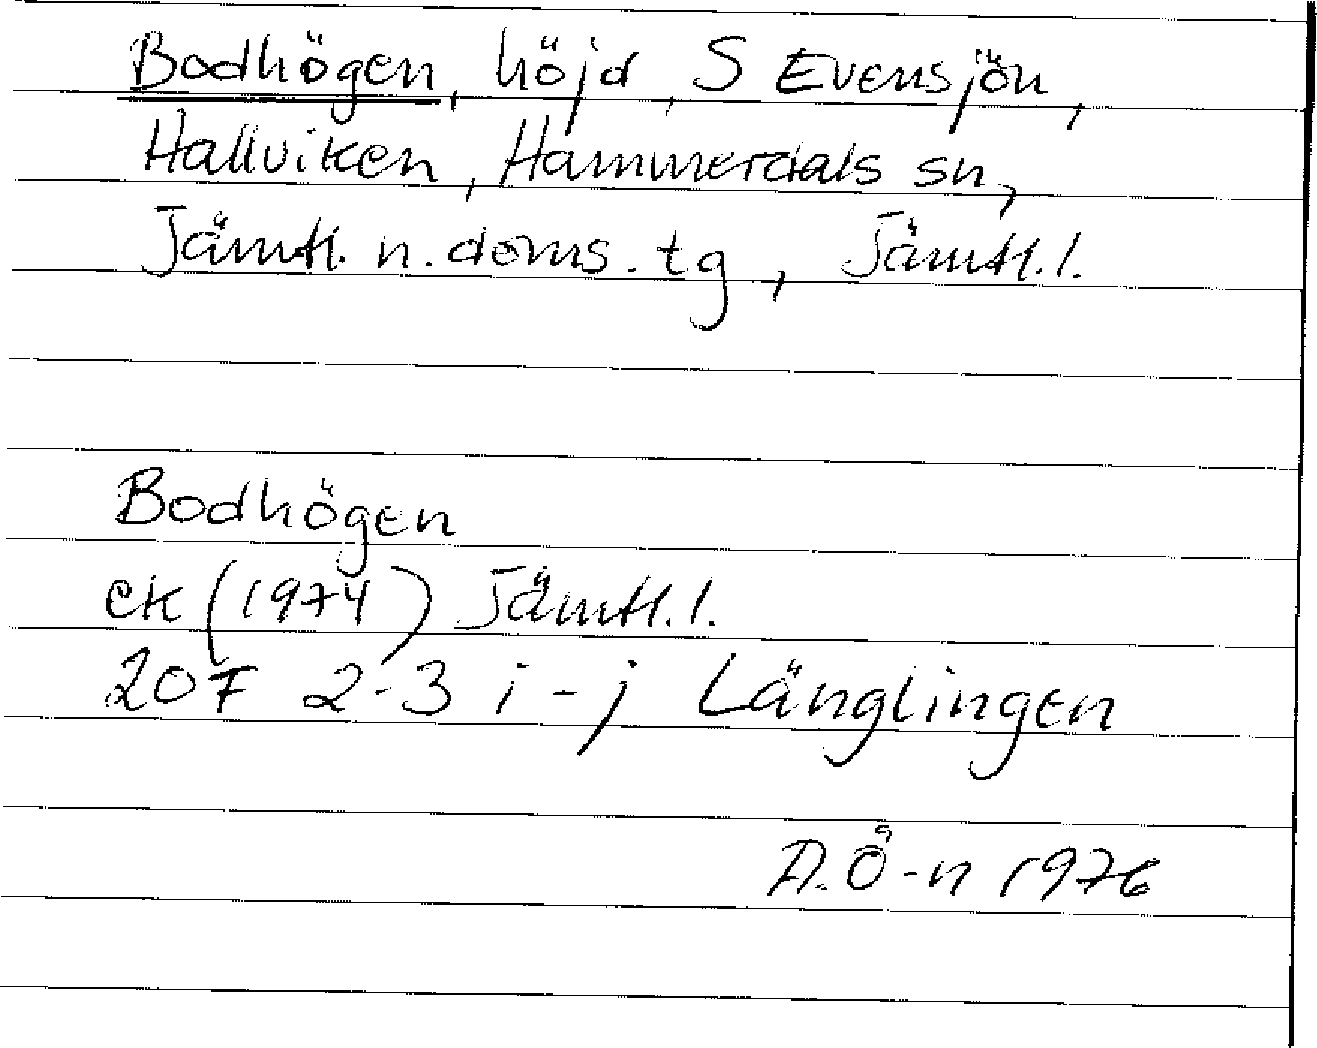 Bodhögen, höjd, S Evensjön,
Hallviken, Hammerdals sn,
Jämtl. n. doms. tg, Jämtl. l.
Bodhögen
ek (1974) Jämtl. l.
20F 2-3 i-j Länglingen
A. Ö-n 1976